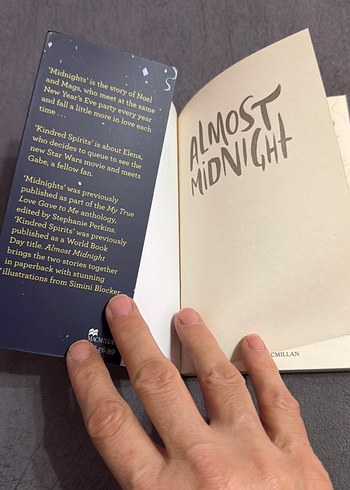 'Midnights' is the story of Noel
and Mags, who meet at the same
New Year's Eve party every year
and fall a little more in love each
time . . .
'Kindred Spirits' is about Elena,
who decides to queue to see the
new Star Wars movie and meets
Gabe, a fellow fan.
'Midnights' was previously
published as part of the My True
Love Gave to Me anthology,
edited by Stephanie Perkins.
'Kindred Spirits' was previously
published as a World Book
Day title. Almost Midnight
brings the two stories together
in paperback with stunning
illustrations from Simini Blocker.
MACMILLAN
£6.99
ALMOST
MIDNIGHT
CMILLAN